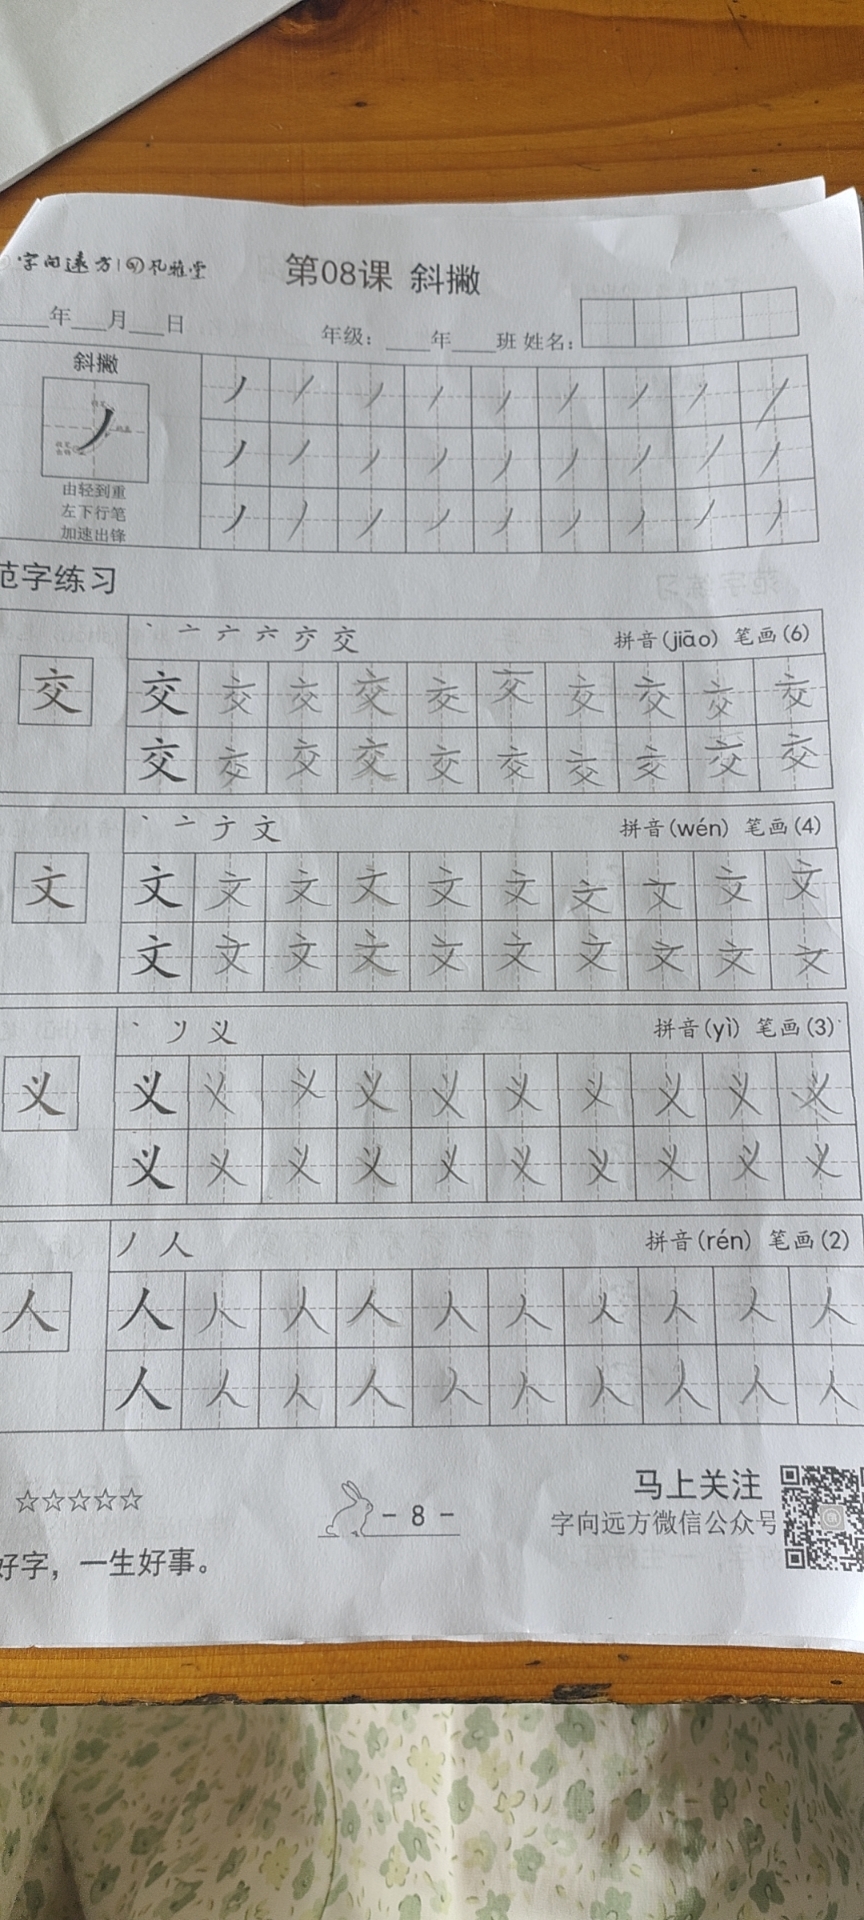 字向远方|孔雅堂
第08课 斜撇
年 月 日 年级： 年 班 姓名：
斜撇
由轻到重
左下行笔
加速出锋
丿 丿 丿 丿 丿 丿 丿 丿 丿
丿 丿 丿 丿 丿 丿 丿 丿 丿
丿 丿 丿 丿 丿 丿 丿 丿 丿
范字练习
丶 亠 六 交 拼音(jiāo) 笔画(6)
交
交 交 交 交 交 交 交 交 交 交
交 交 交 交 交 交 交 交 交 交
丶 亠 文 拼音(wén) 笔画(4)
文
文 文 文 文 文 文 文 文 文 文
文 文 文 文 文 文 文 文 文 文
丶 义 拼音(yì) 笔画(3)
义
义 义 义 义 义 义 义 义 义 义
义 义 义 义 义 义 义 义 义 义
丿 人 拼音(rén) 笔画(2)
人
人 人 人 人 人 人 人 人 人 人
人 人 人 人 人 人 人 人 人 人
☆☆☆☆☆
- 8 -
马上关注
字向远方微信公众号
好字，一生好事。